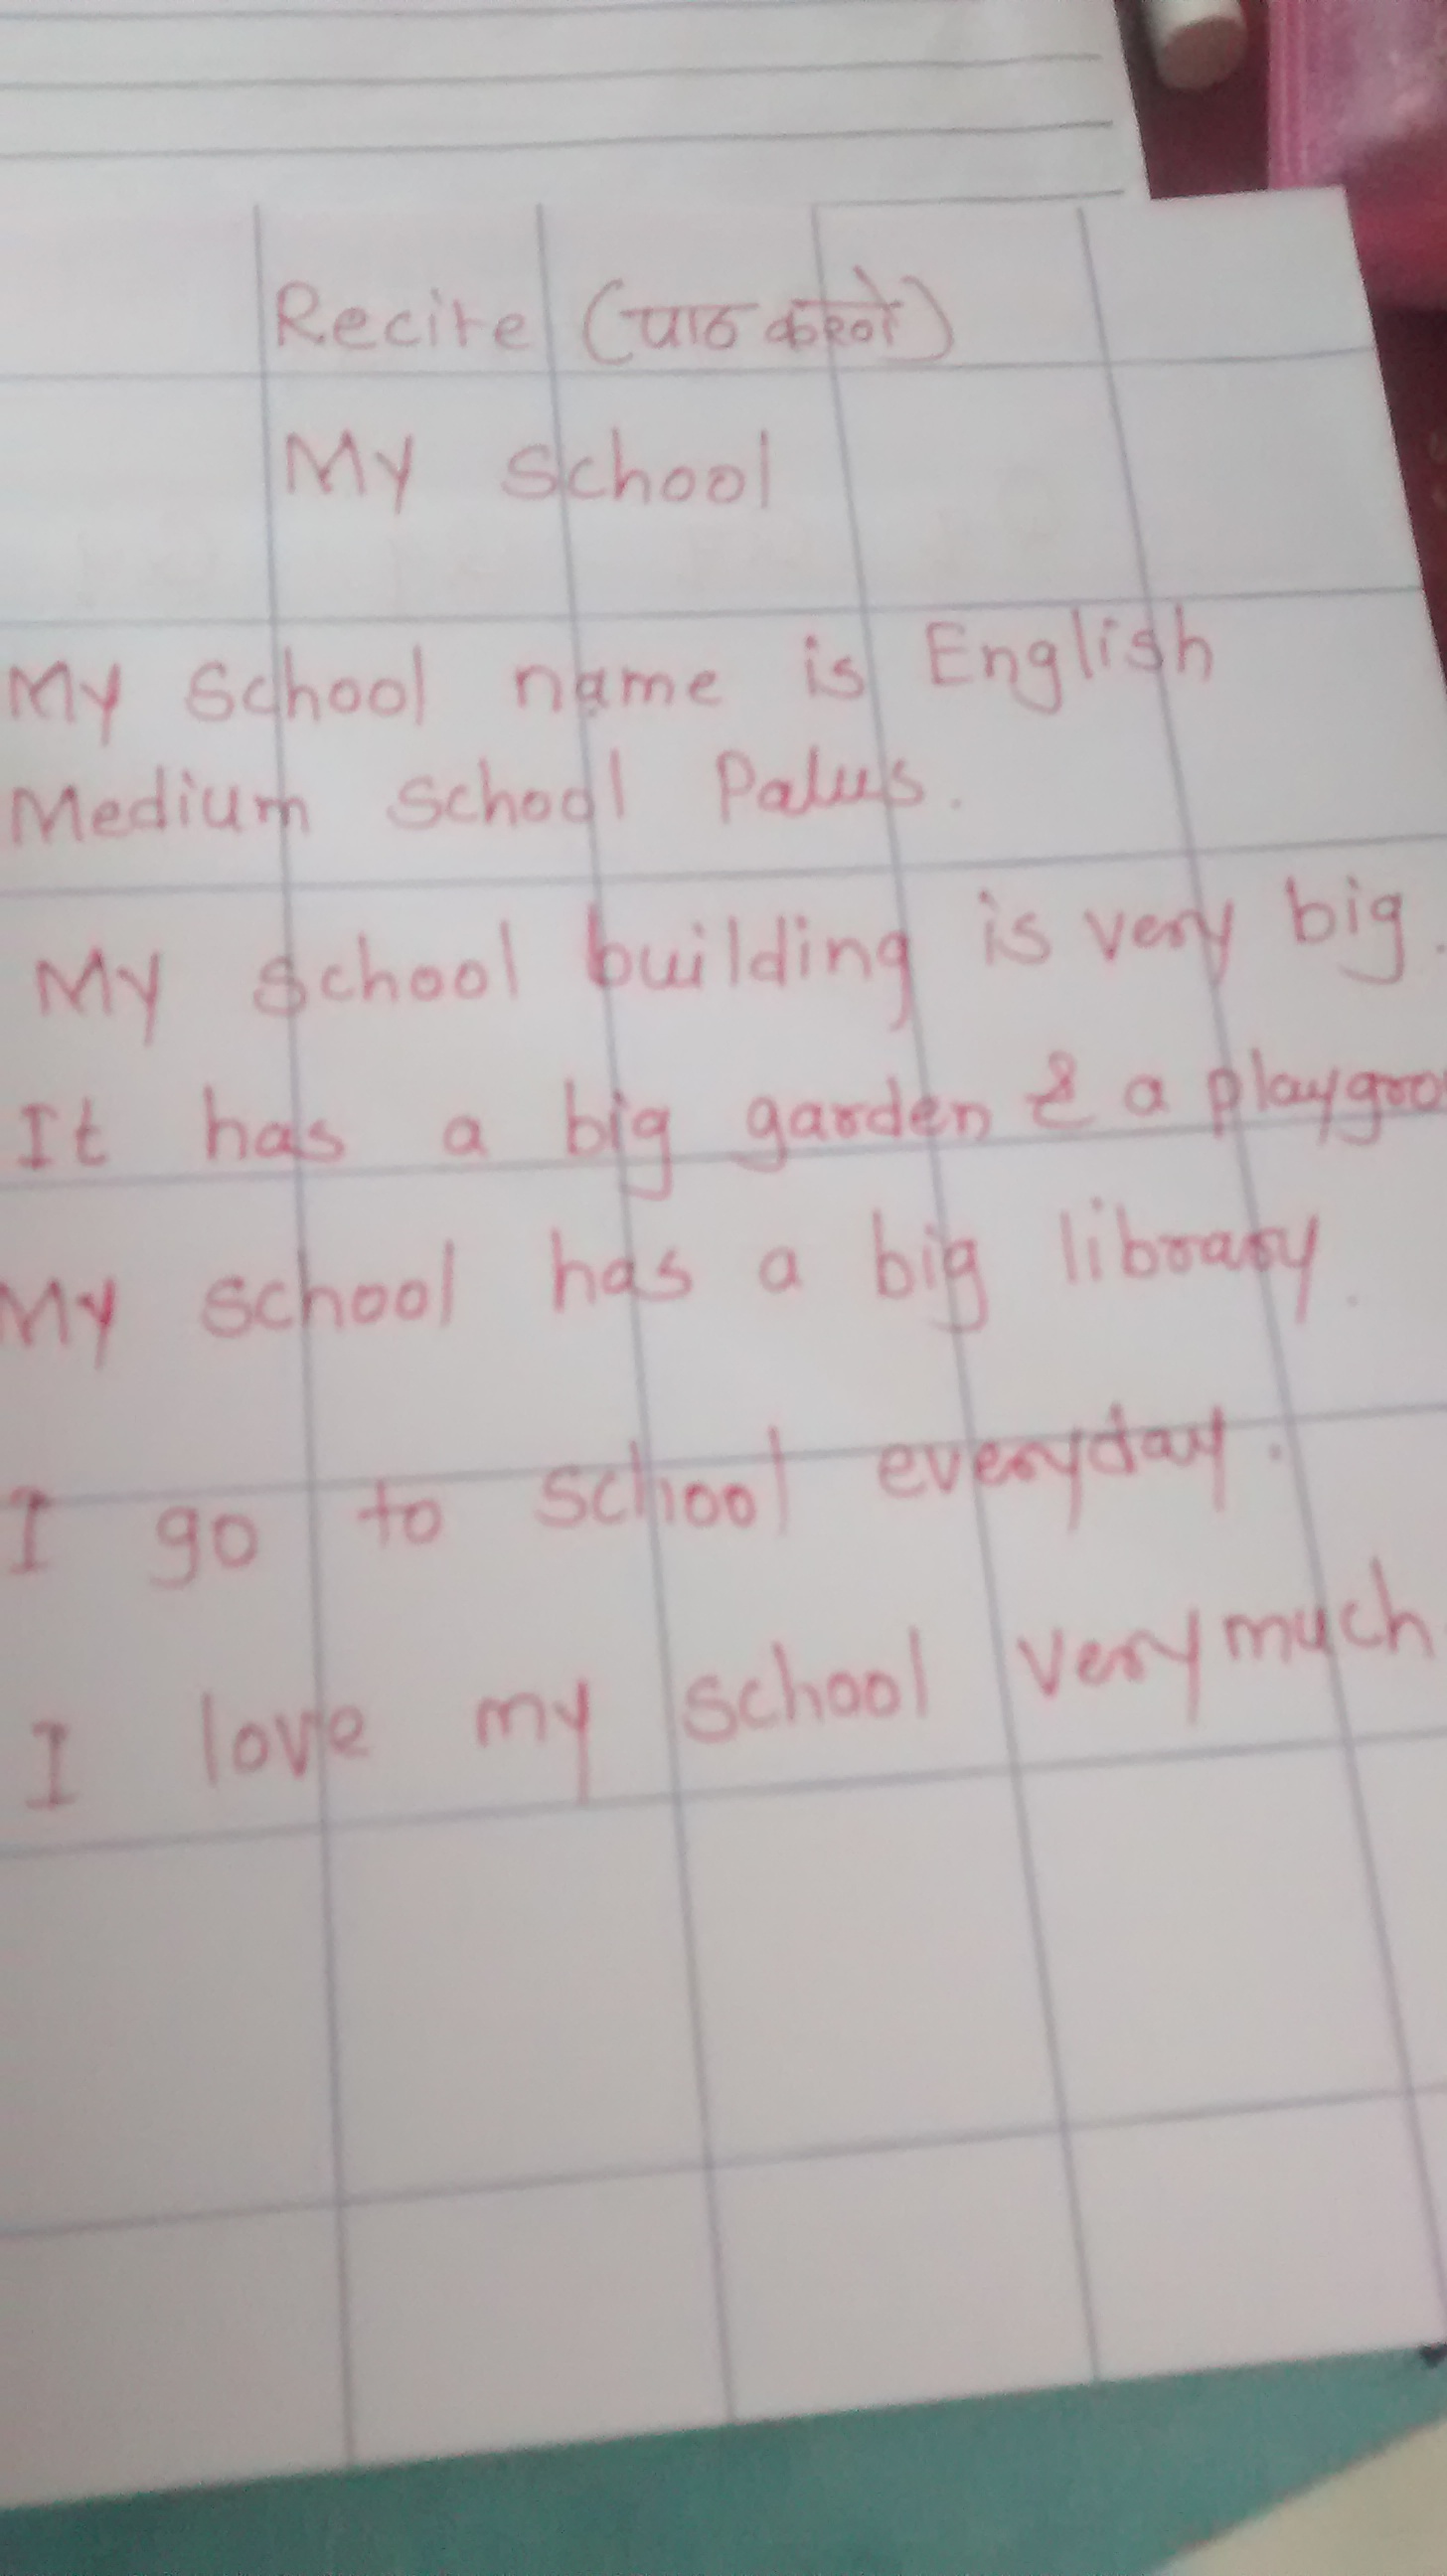 Recite (पाठ करणे)
My school
My school name is English
Medium school Palus.
My school building is very big.
It has a big garden & a playgro
My school has a big library.
I go to school everyday.
I love my school very much